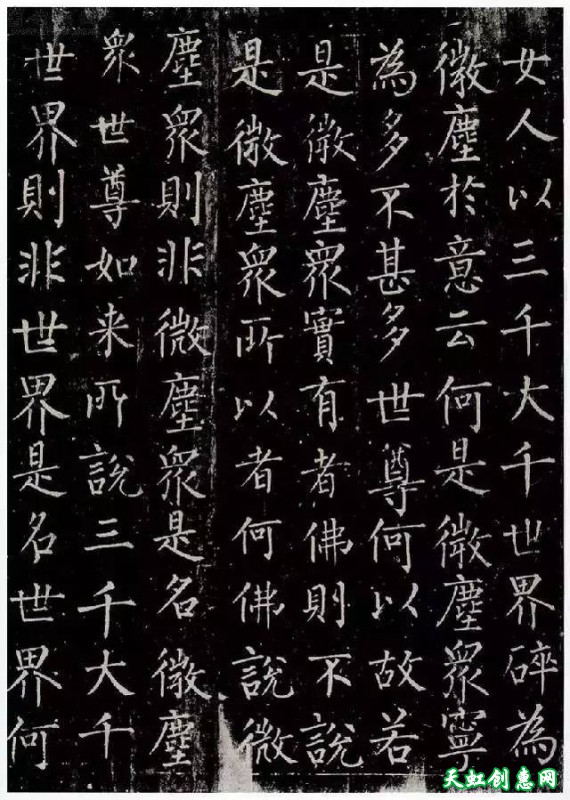 女人以三千大千世界碎為
微塵於意云何是微塵眾寧
為多不甚多世尊何以故若
是微塵眾實有者佛則不說
是微塵眾所以者何佛說微
塵眾則非微塵眾是名微塵
眾世尊如来所說三千大千
世界則非世界是名世界何
天虹创惠网